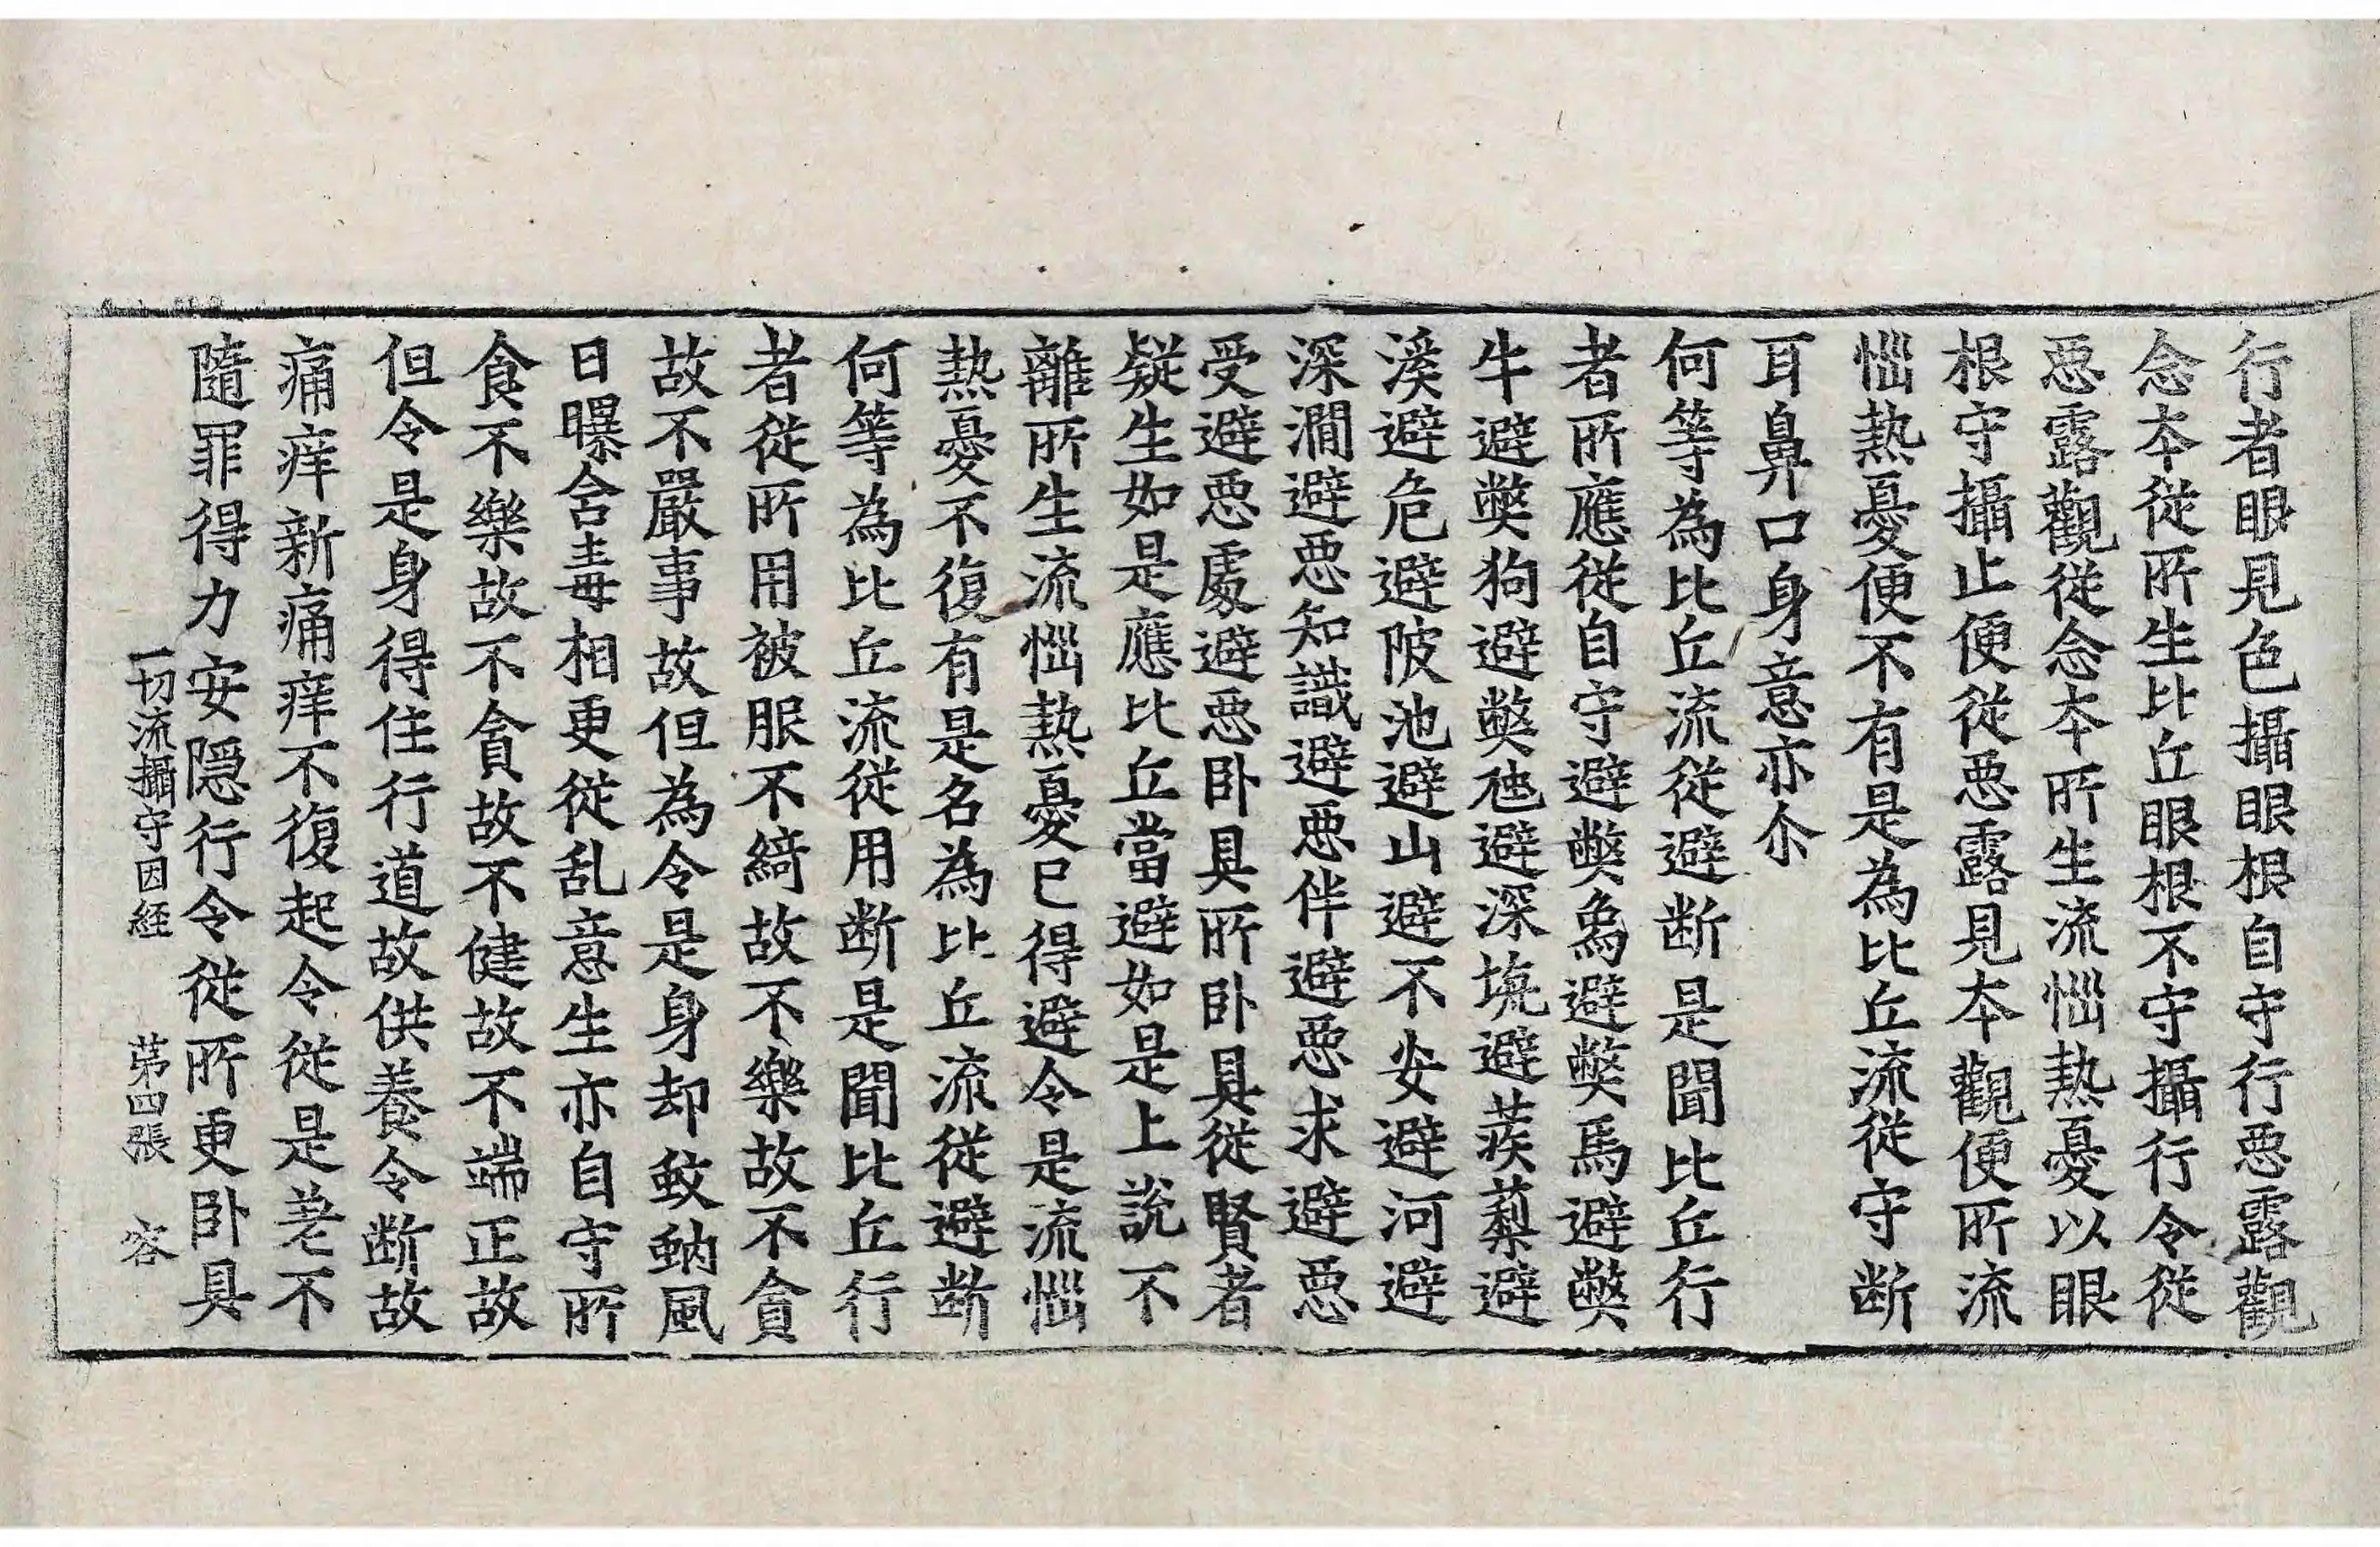 行者眼見色攝眼根自守行惡露觀
念本從所生比丘眼根不守攝行令從
惡露觀從念本所生流惱熱憂以眼
根守攝止便從惡露見本觀便所流
惱熱憂便不有是為比丘流從守断
耳鼻口身意亦尒
何等為比丘流從避断是聞比丘行
者所應從自守避弊象避弊馬避弊
牛避弊狗避弊虵避深坑避蒺蔾避
溪避危避陂池避山避不安避河避
深澗避惡知識避惡伴避惡求避惡
受避惡處避惡卧具所卧具從賢者
疑生如是應比丘當避如是上說不
離所生流惱熱憂已得避令是流惱
熱憂不復有是名為比丘流從避断
何等為比丘流從用断是聞比丘行
者從所用被服不綺故不樂故不貪
故不嚴事故但為令是身却蚊蚋風
日曝含毒相更從乱意生亦自守所
食不樂故不貪故不健故不端正故
但令是身得住行道故供養令断故
痛痒新痛痒不復起令從是荖不
隨罪得力安隠行令從所更卧具
一切流攝守因経 苐四張 容